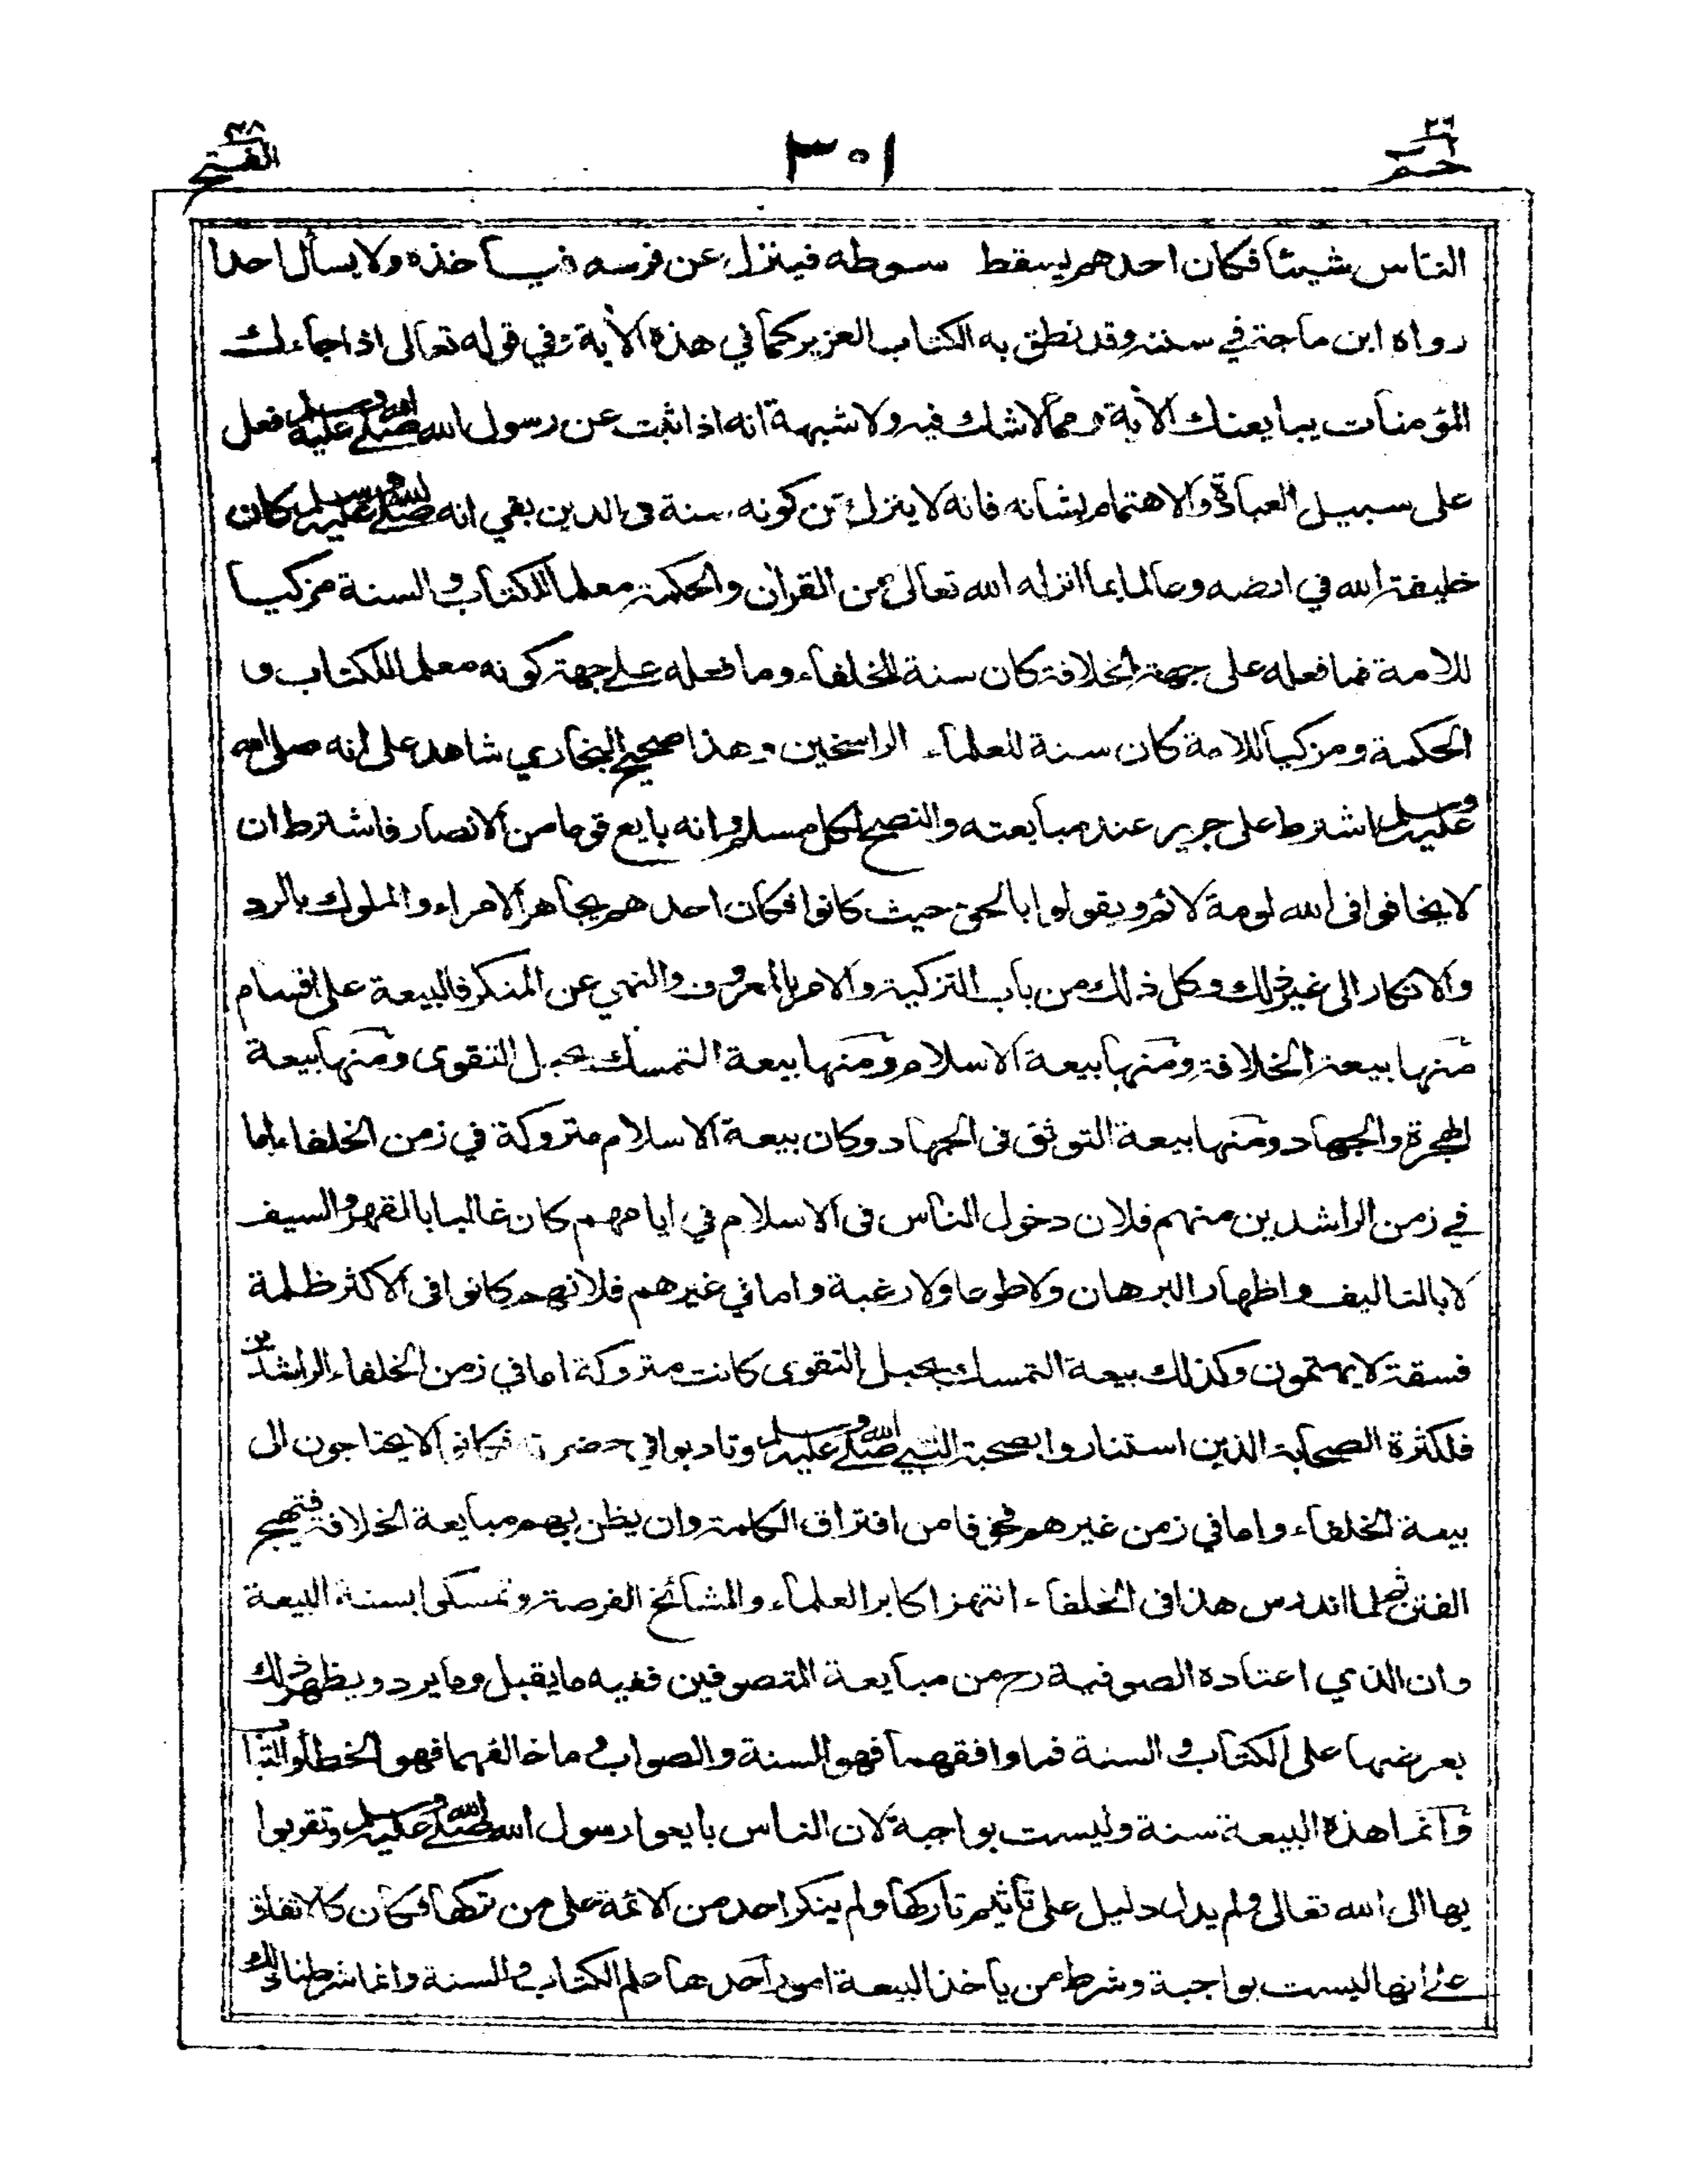 ٢٦
حم
٣٠١
٤٨
الفتح
الناس شيئا فكان احدهم يسقط سوطه فينزل عن فرسه فيأخذه ولا يسأل احدا
رواه ابن ماجة في سننه وقد نطق به الكتاب العزيز كما في هذه الأية وفي قوله تعالى اذا جاءك
المؤمنات يبايعنك الأية ومما لا شك فيه ولا شبهة انه اذا ثبت عن رسول الله صلى الله عليه وسلم فعل
على سبيل العبادة والاهتمام بشانه فانه لا ينزل عن كونه سنة في الدين بقي انه صلى الله عليه وسلم كان
خليفة الله في ارضه وعالما بما انزله الله تعالى من القران والحكمة معلما للكتاب والسنة مزكيا
للامة فما فعله على جهة الخلافة كان سنة للخلفاء وما فعله على جهة كونه معلما للكتاب و
الحكمة ومزكيا للامة كان سنة للعلماء الراسخين وهذا صحيح البخاري شاهد على انه صلى الله
عليه وسلم اشترط على جرير عند مبايعته والنصح لكل مسلم وانه بايع قوما من الانصار فاشترط ان
لا يخافوا في الله لومة لائم ويقولوا بالحق حيث كانوا فكان احدهم يجاهر الامراء والملوك بالرد
والانكار الى غير ذلك وكل ذلك من باب التزكية والامر بالمعروف والنهي عن المنكر فالبيعة على اقسام
منها بيعة الخلافة ومنها بيعة الاسلام ومنها بيعة التمسك بحبل التقوى ومنها بيعة
الهجرة والجهاد ومنها بيعة التوثق في الجهاد وكان بيعة الاسلام متروكة في زمن الخلفاء اما
في زمن الراشدين منهم فلان دخول الناس في الاسلام في ايامهم كان غالبا بالقهر والسيف
لا بالتاليف واظهار البرهان ولا طوعا ولا رغبة واما في غيرهم فلانهم كانوا في الاكثر ظلمة
فسقة لا يهتمون وكذلك بيعة التمسك بحبل التقوى كانت متروكة اما في زمن الخلفاء الراشدين
فلكثرة الصحابة الذين استناروا بصحبة النبي صلى الله عليه وسلم وتادبوا في حضرته فكانوا لا يحتاجون الى
بيعة الخلفاء واما في زمن غيرهم فخوفا من افتراق الكلمة وان يظن بهم مبايعة الخلافة فتهيج
الفتن ثم لما اندرس هذا في الخلفاء انتهز اكابر العلماء والمشائخ الفرصة وتمسكوا بسنة البيعة
وان الذي اعتاده الصوفية رح من مبايعة المتصوفين ففيه ما يقبل وما يرد ويظهر ذلك
بعرضها على الكتاب والسنة فما وافقهما فهو السنة والصواب وما خالفهما فهو الخطأ والتباب
وانما هذه البيعة سنة وليست بواجبة لان الناس بايعوا رسول الله صلى الله عليه وسلم وتقربوا
بها الى الله تعالى ولم يدل دليل على تأثيم تاركها ولم ينكر احد من الائمة على من تركها فكان كالاتفاق
على انها ليست بواجبة وشرط من ياخذ البيعة امور احدها علم الكتاب والسنة وانما شرطنا ذلك